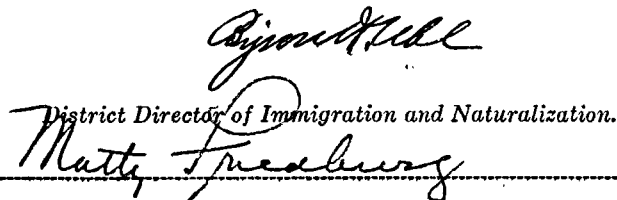 Byron H. Uhl
District Director of Immigration and Naturalization.
Matty Friedburg